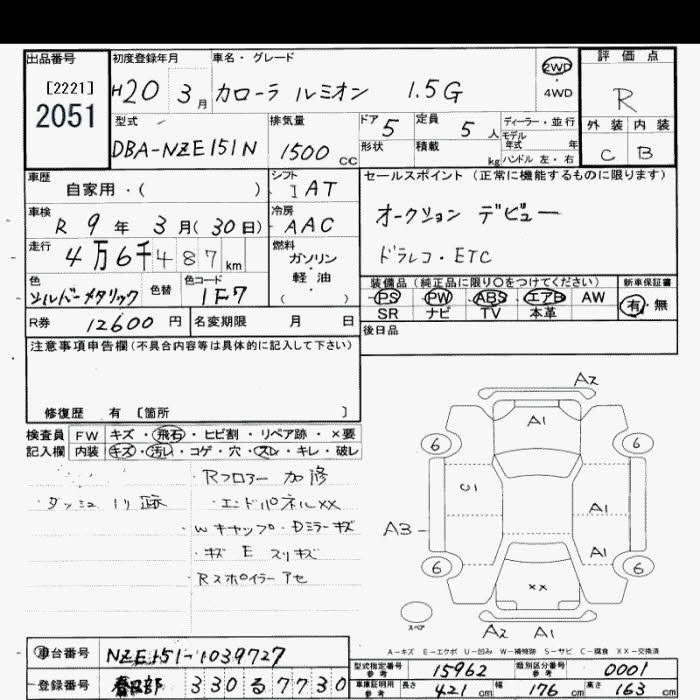 出品番号
[2221]
2051
初度登録年月
H20 3月
車名・グレード
カローラ ルミオン 1.5G
2WD
・
4WD
評価点
R
外装 内装
C B
型式
DBA-NZE151N
排気量
1500 CC
ドア 5
形状
定員 5 人
積載 kg
ディーラー・並行
モデル年式 年
ハンドル 左・右
車歴
自家用・( )
シフト
IAT
車検
R 9 年 3 月 (30日)
冷房
AAC
走行
4万6千487 km
燃料
ガソリン
・
軽油
( )
色
シルバーメタリック
色替
色コード
1F7
R券 12600 円
名変期限 月 日
セールスポイント (正常に機能するものに限ります)
オークション デビュー
ドラレコ・ETC
装備品 (純正品に限り○をつけてください)
PS PW ABS エアB AW
SR ナビ TV 本革
新車保証書
有・無
後日品
注意事項申告欄(不具合内容等は具体的に記入して下さい)
修復歴 有 〔箇所 〕
検査員 FW キズ・飛石・ヒビ割・リペア跡・×要
記入欄 内装 キズ・汚レ・コゲ・穴・スレ・キレ・破レ
・ダッシュ ノリ跡
・Rフロアー 加修
・エンドパネルXX
・Wキャップ・Dミラーキズ
・キズ E スリキズ
Rスポイラーアセ
A2
A1
6 6
C1
A1
A3
A1
6 6
XX
スペア
A2 A1
A-キズ E-エクボ U-凹み W-補修跡 S-サビ C-腐食 XX-交換済
車台番号 NZE151-1039727
登録番号 春日部 330 る 7730
型式指定番号
参考
15962
類別区分番号
参考
0001
車庫証明用
参考
長さ 421 cm 幅 176 cm 高さ 163 cm